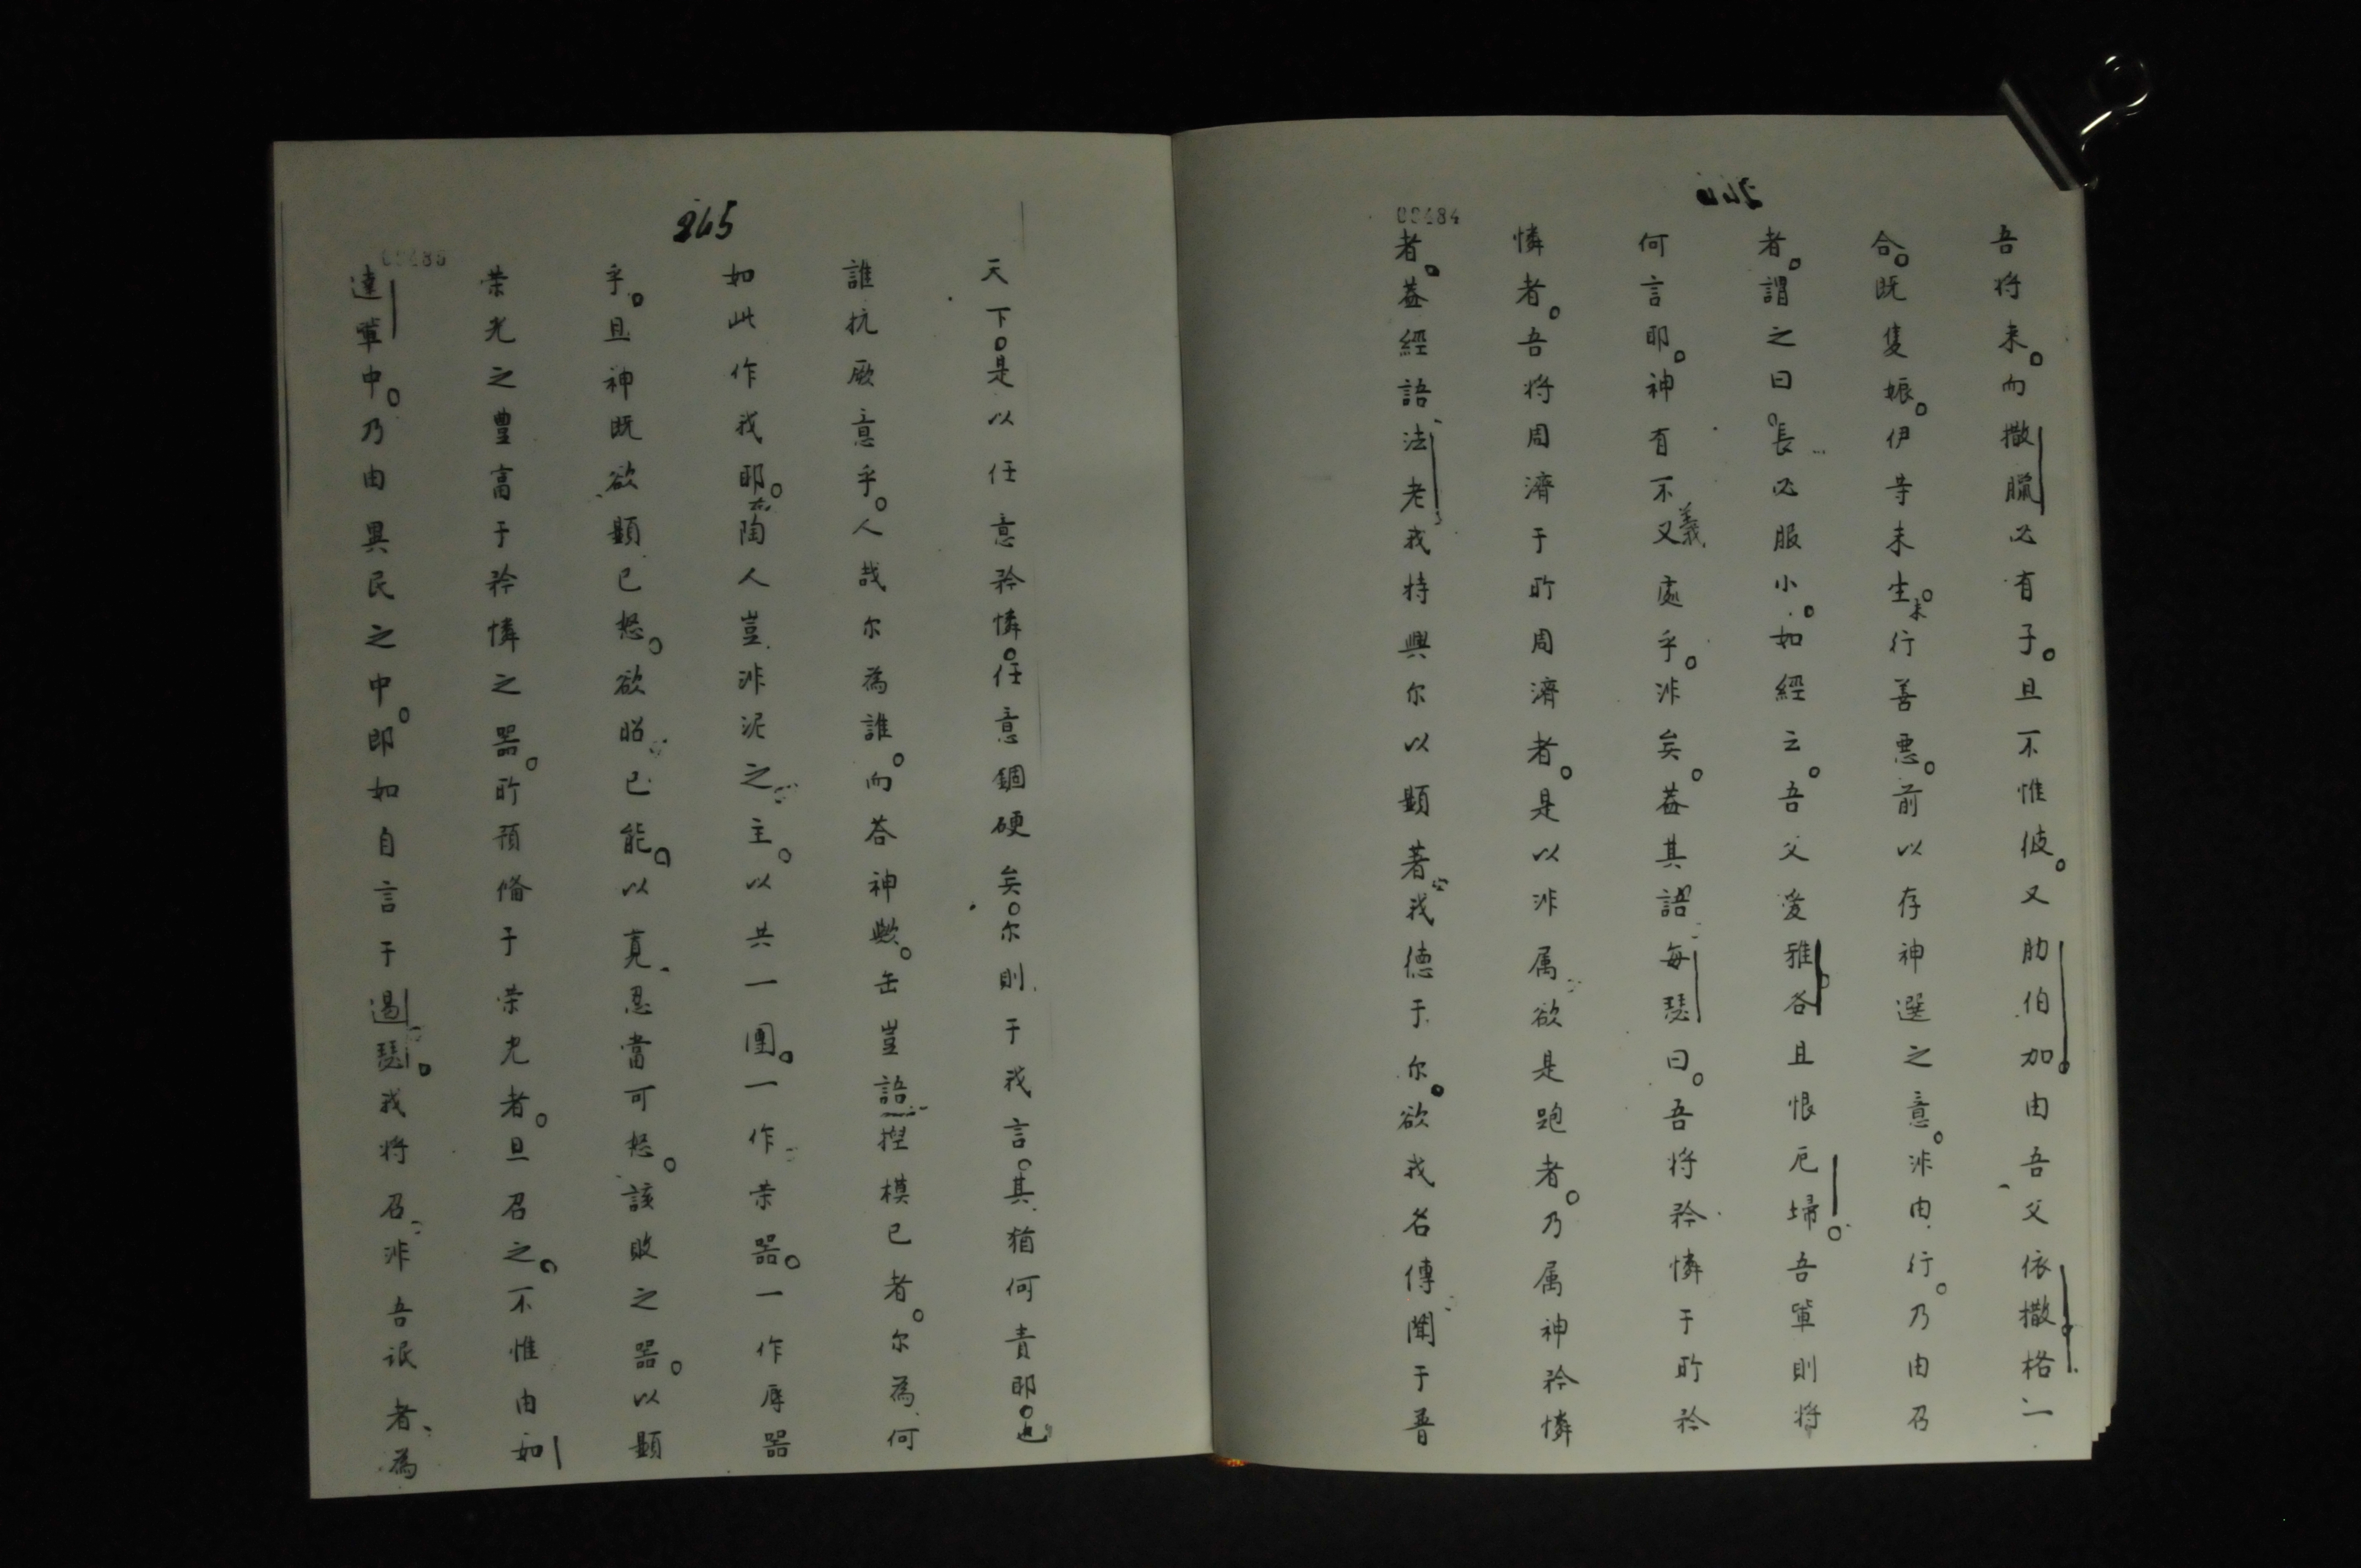 264
00484
吾將来。而撒臘必有子。且不惟彼。又肋伯加。由吾父依撒格一
合。既隻娠。伊等未生。未行善惡。前以存神選之意。非由行。乃由召
者。謂之曰。長必服小。如經云。吾父愛雅各且恨厄埽。吾軰則將
何言耶。神有不义義處乎。非矣。葢其語每瑟曰。吾將矜憐于所矜
憐者。吾将周濟于所周濟者。是以非属欲是跑者。乃属神矜憐
者。葢經語法老我特興尔以顯著我德于尔。欲我名傳聞于普
265
天下。是以任意矜憐。任意錮硬矣。尔則于我言。其猶何責耶。
誰抗厥意乎。人哉尔為誰。而荅神歟。缶豈語揑模已者。尔為何
如此作我耶。陶人豈非泥之主。以共一團。一作荣器。一作辱器
乎。且神既欲顯已怒。欲昭已能。以寛忍當可怒。該敗之器。以顯
荣光之豊富于矜憐之器。所預俻于荣光者。且召之。不惟由如
達軰中。乃由異民之中。即如自言于遏瑟。我将召非吾氓者、為